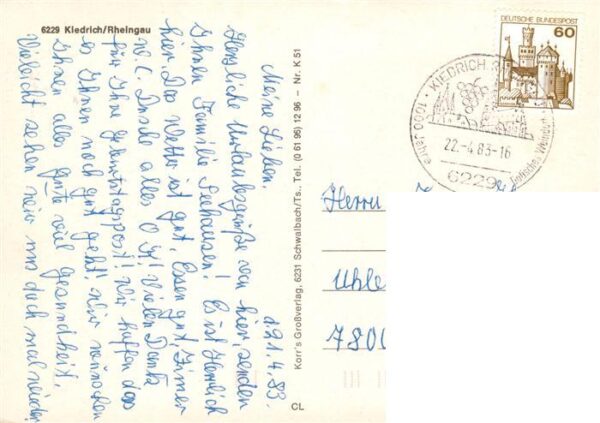 6229 Kiedrich/Rheingau
d 21.4.83.
Meine Lieben.
Herzliche Urlaubsgrüße von hier, senden
Ihnen Familie Seehausen! Es ist herrlich
hier. Das Wetter ist gut, Essen gut, Zimmer
W.C. Dusche alles O.K! Vielen Dank
für Ihre Geburtstagspost! Wir hoffen das
es Ihnen noch gut geht! Wir wünschen
Ihnen alles gute viel gesundheit.
Vieleicht sehen wir uns duch mal wieder
Korr's Großverlag, 6231 Schwalbach/Ts., Tel. (0 61 96) 12 96 – Nr. K 51
CL
DEUTSCHE BUNDESPOST
60
KIEDRICH
1000 Jahre
Gotisches Weindorf
22.-4.83-16
6229
Herrn
Uhle
7800